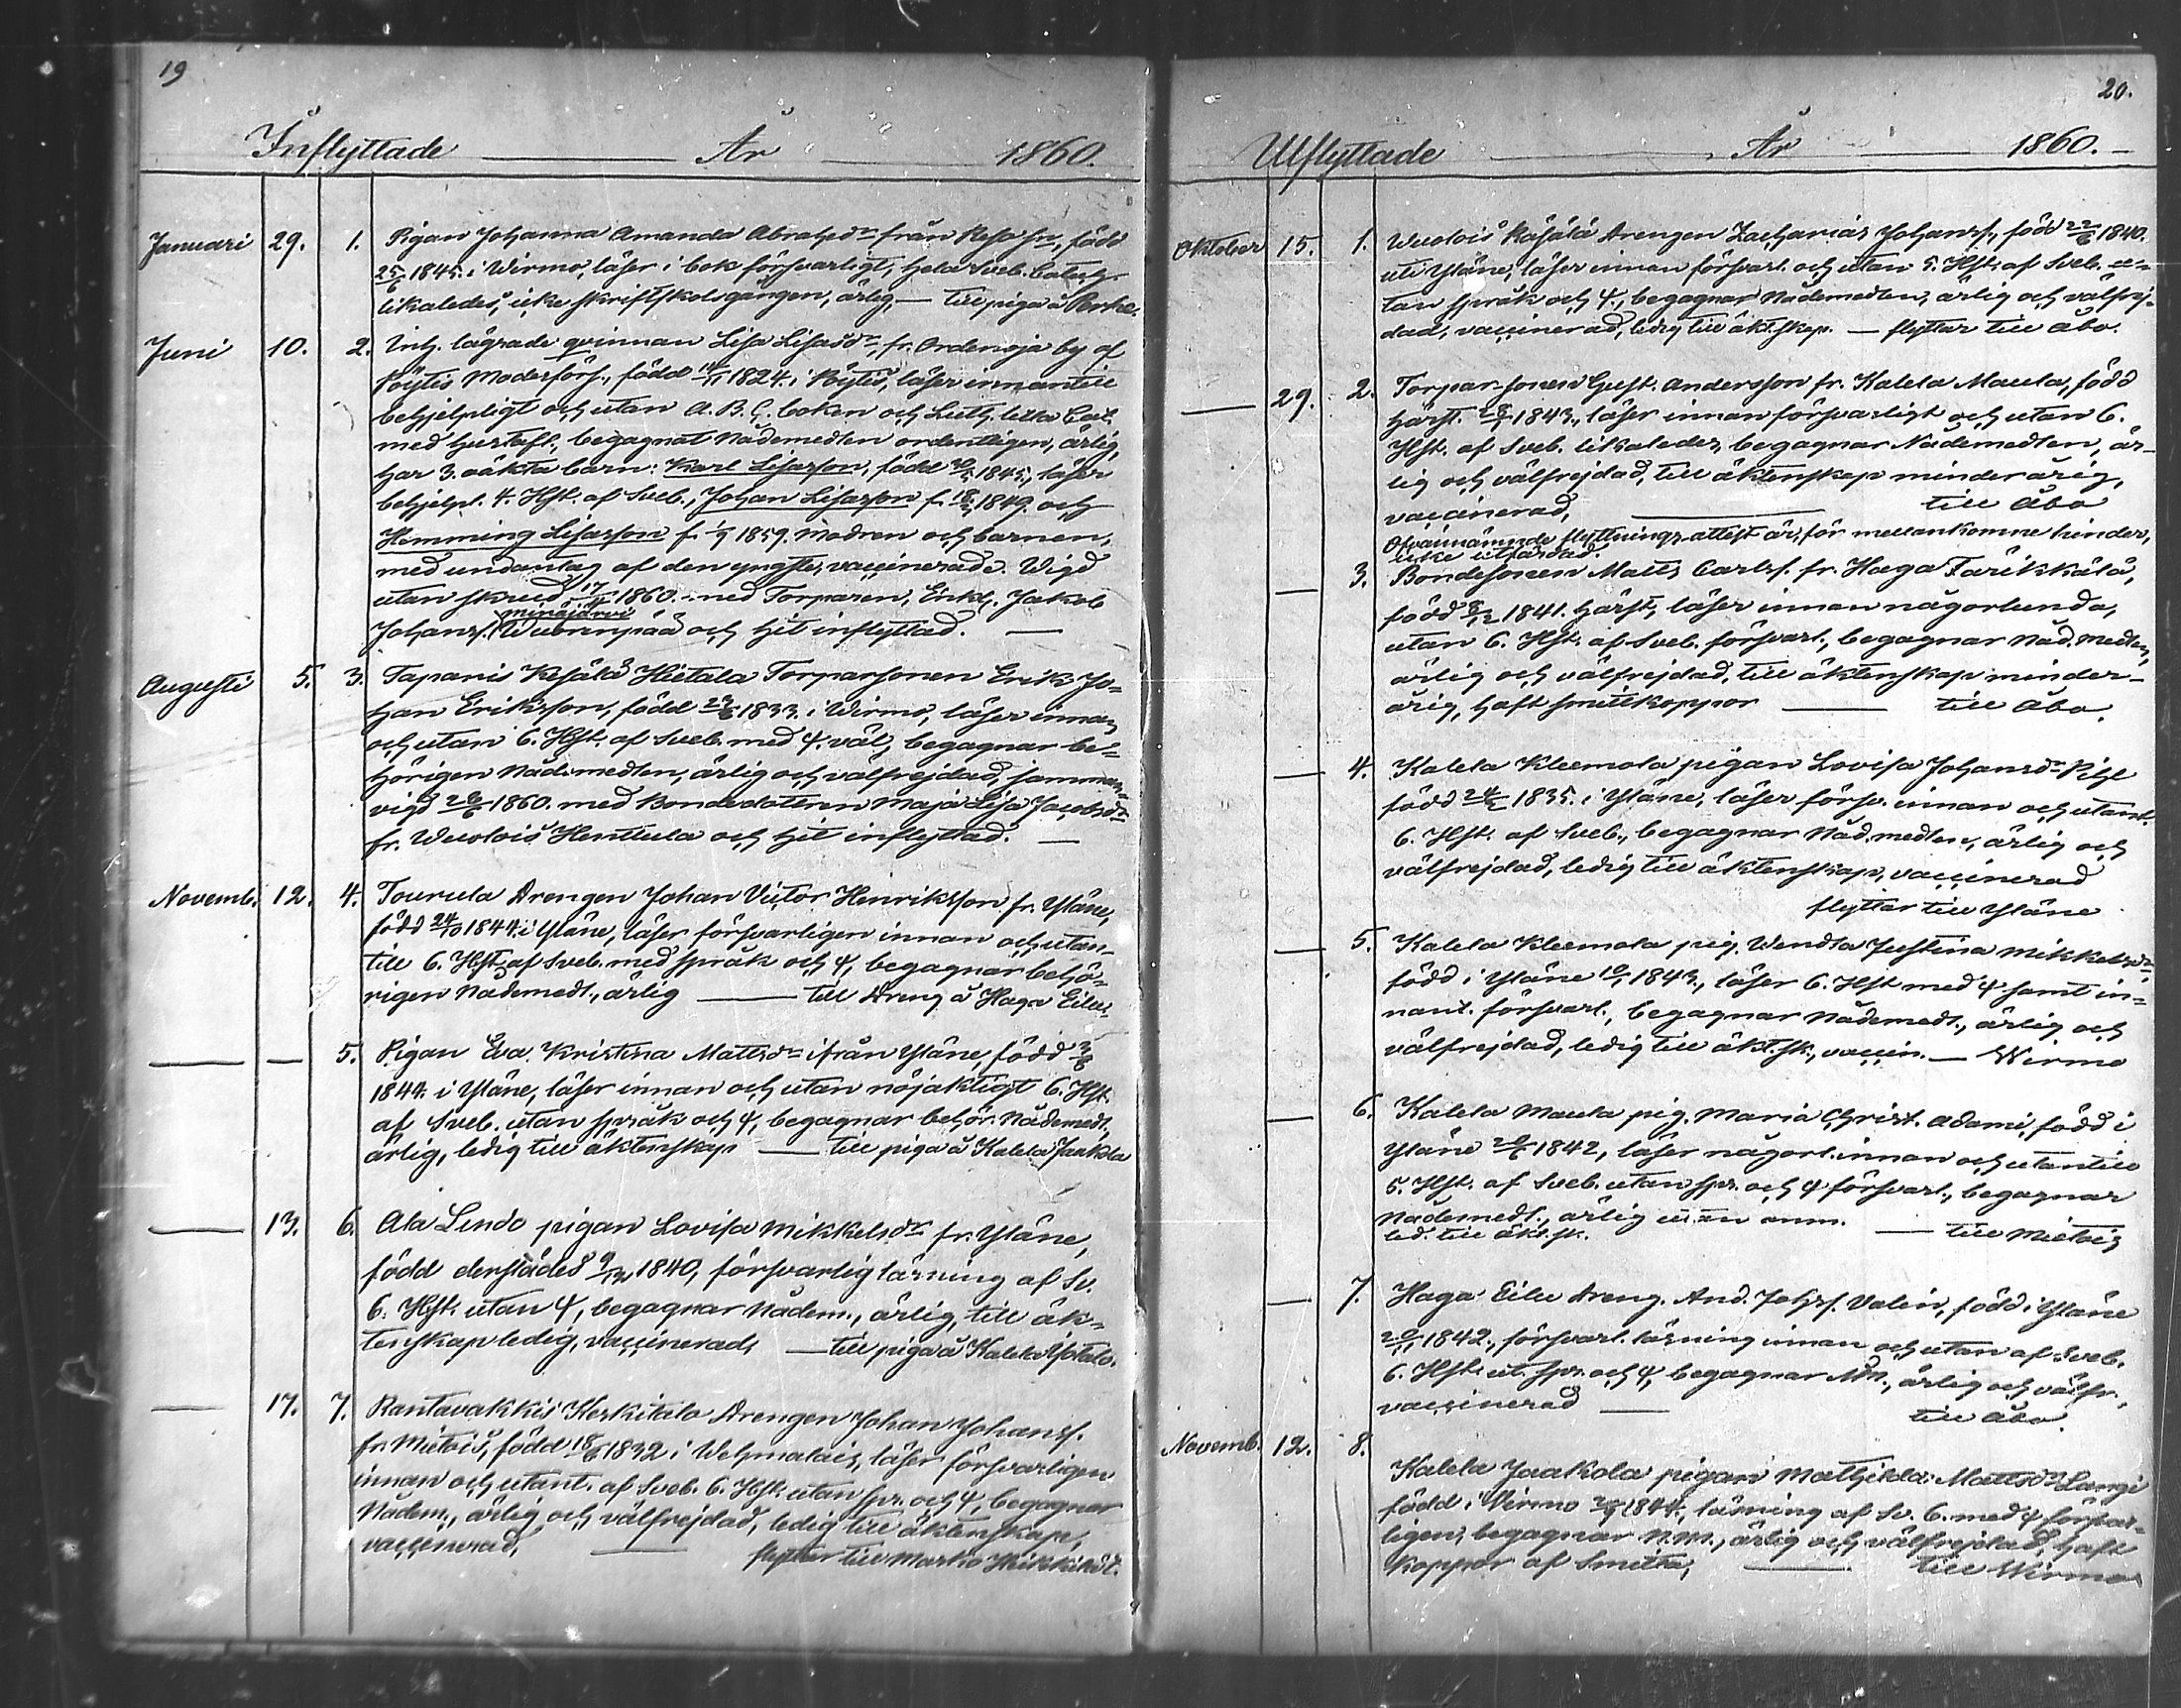 19
Inflyttade År 1860.
Januari 29. 1. Pigan Johanna Amanda Abrahsdr från Reso sn, född
25/6 1845. i Wirmo, läser i bok försvarligt, hela Sveb. Catech.
likaledes, icke skriftskolsgången, ärlig, — till piga å
Juni 10. 2. Inh. lägrade qvinnan Lisa Lisasdr, fr. Ordenoja by af
Pöytis Moderförs., född 1824. i Pöytis, läser innantill
behjelpligt och utan A.B.C. boken och Luth. lilla Cat.
med hustafl., begagnat Nådemedlen ordentligen, ärlig,
har 3. oäkta barn: Karl Lisasson, född 1845., läser
behjelpl. 4. Hst. af Sveb., Johan Lisasson f. 1849. och
Hemming Lisasson f. 1859. Modren och barnen,
med undantag af den yngste, vaccinerade. Wigd
utan skrud 1860. med Torparen, Enkl. Jakob
Minäjärvi
Johanss. Wuorenpää och hit inflyttad. —
Augusti 5. 3. Tapanis Kesälä Hietala Torparsonen Erik Jo-
han Eriksson, född 1833. i Wirmo, läser innan
och utan 6. Hst. af Sveb. med 4. väl, begagnar be-
hörigen Nådemedlen, ärlig och välfrejdad, samman-
vigd 1860. med Bondedottren Maja Lisa Jacobsdr
fr. Wuolois Henttula och hit inflyttad. —
Novemb. 12. 4. Tourula Drengen Johan Victor Henriksson fr. Yläne,
född 24/10 1844. i Yläne, läser försvarligen innan och utan-
till 6. Hst. af Sveb. med språk och 4, begagnar behö-
rigen Nådemedl., ärlig — till Dreng å Haga Eilu.
— — 5. Pigan Eva Kristina Mattsdr ifrån Yläne, född
1844. i Yläne, läser innan och utan nöjaktigt 6. Hst.
af Sveb. utan språk och 4, begagnar behör. Nådemedl.
ärlig, ledig till äktenskap — till piga å Kalela Jaakola
— 13. 6. Ala Lendo pigan Lovisa Mikkelsdr fr. Yläne,
född derstädes 9/12 1840, försvarlig läsning af Sv.
6. Hst. utan 4, begagnar Nådem., ärlig, till äk-
tenskap ledig, vaccinerad, — till piga å Kalela
— 17. 7. Rantavakkis Kerkitalo Drengen Johan Johanss.
fr. Mietois, född 18/6 1832 i Wehmalais, läser försvarligen
innan och utant. af Sveb. 6. Hst. utan spr. och 4, begagnar
Nådem., ärlig och välfrejdad, ledig till äktenskap,
vaccinerad, — flyttar till Marho
20.
Utflyttade År 1860.
Oktober 15. 1. Wuolois Käsälä Drengen Zacharias Johanss., född 22/6 1840.
uti Yläne, läser innan försvarl. och utan 5. Hst. af Sveb. u-
tan språk och 4., begagnar Nådemedlen, ärlig och välfrej-
dad, vaccinerad, ledig till äkt.skap. — flyttar till Åbo.
— 29. 2. Torpar-sonen Gust. Andersson fr. Kalela Maula, född
härst. 1843., läser innan försvarligt och utan 6.
Hst. af Sveb. likaledes, begagnar Nådemedlen, är-
lig och välfrejdad, till äktenskap minderårig,
vaccinerad, — till Åbo
Ofvannämnde flyttnings-attest är, för mellankomne hinder,
icke utfärdad.
— 3. Bondesonen Matts Carlss. fr. Haga Tärikkälä,
född 8/12 1841. härst., läser innan någorlunda,
utan 6. Hst. af Sveb. försvarl., begagnar Nåd.medlen,
ärlig och välfrejdad, till äktenskap minder-
årig, haft smittkoppor — till Åbo.
— 4. Kalela Kleemola pigan Lovisa Johansdr Pihl
född 1835. i Yläne, läser försv. innan och utant.
6. Hst. af Sveb., begagnar Nåd.medlen, ärlig och
välfrejdad, ledig till äktenskap, vaccinerad
flyttar till Yläne
— 5. Kalela Kleemola pig. Wendla Justina Mikkelsdr
född i Yläne 1843., läser 6. Hst med 4 samt in-
nant. försvarl., begagnar Nådemedl., ärlig och
välfrejdad, ledig till äkt.sk., vaccin. — Wirmo
— 6. Kalela Maula pig. Maria Christ. Adami, född i
Yläne 1842, läser någorl. innan och utantill
5. Hst. af Sveb. utan spr. och 4 försvarl., begagnar
Nådemedl., ärlig utan anm. — till Mietois
led. till äkt.sk.
— 7. Haga Eilu Dreng. And. Johss. Valin, född i Yläne
1842., försvarl. läsning innan och utan af Sveb.
6. Hst. ut. spr. och 4, begagnar Nm., ärlig och välfr.,
vaccinerad — till Åbo.
Novemb. 12. 8. Kalela Jaakola pigan Mathilda Mattsdr Langi
född i Wirmo 1844., läsning af Sv. 6. med 4 försvar-
ligen, begagnar N.m., ärlig och välfrejdad, haft
koppor af Smitta, — till Wirmo